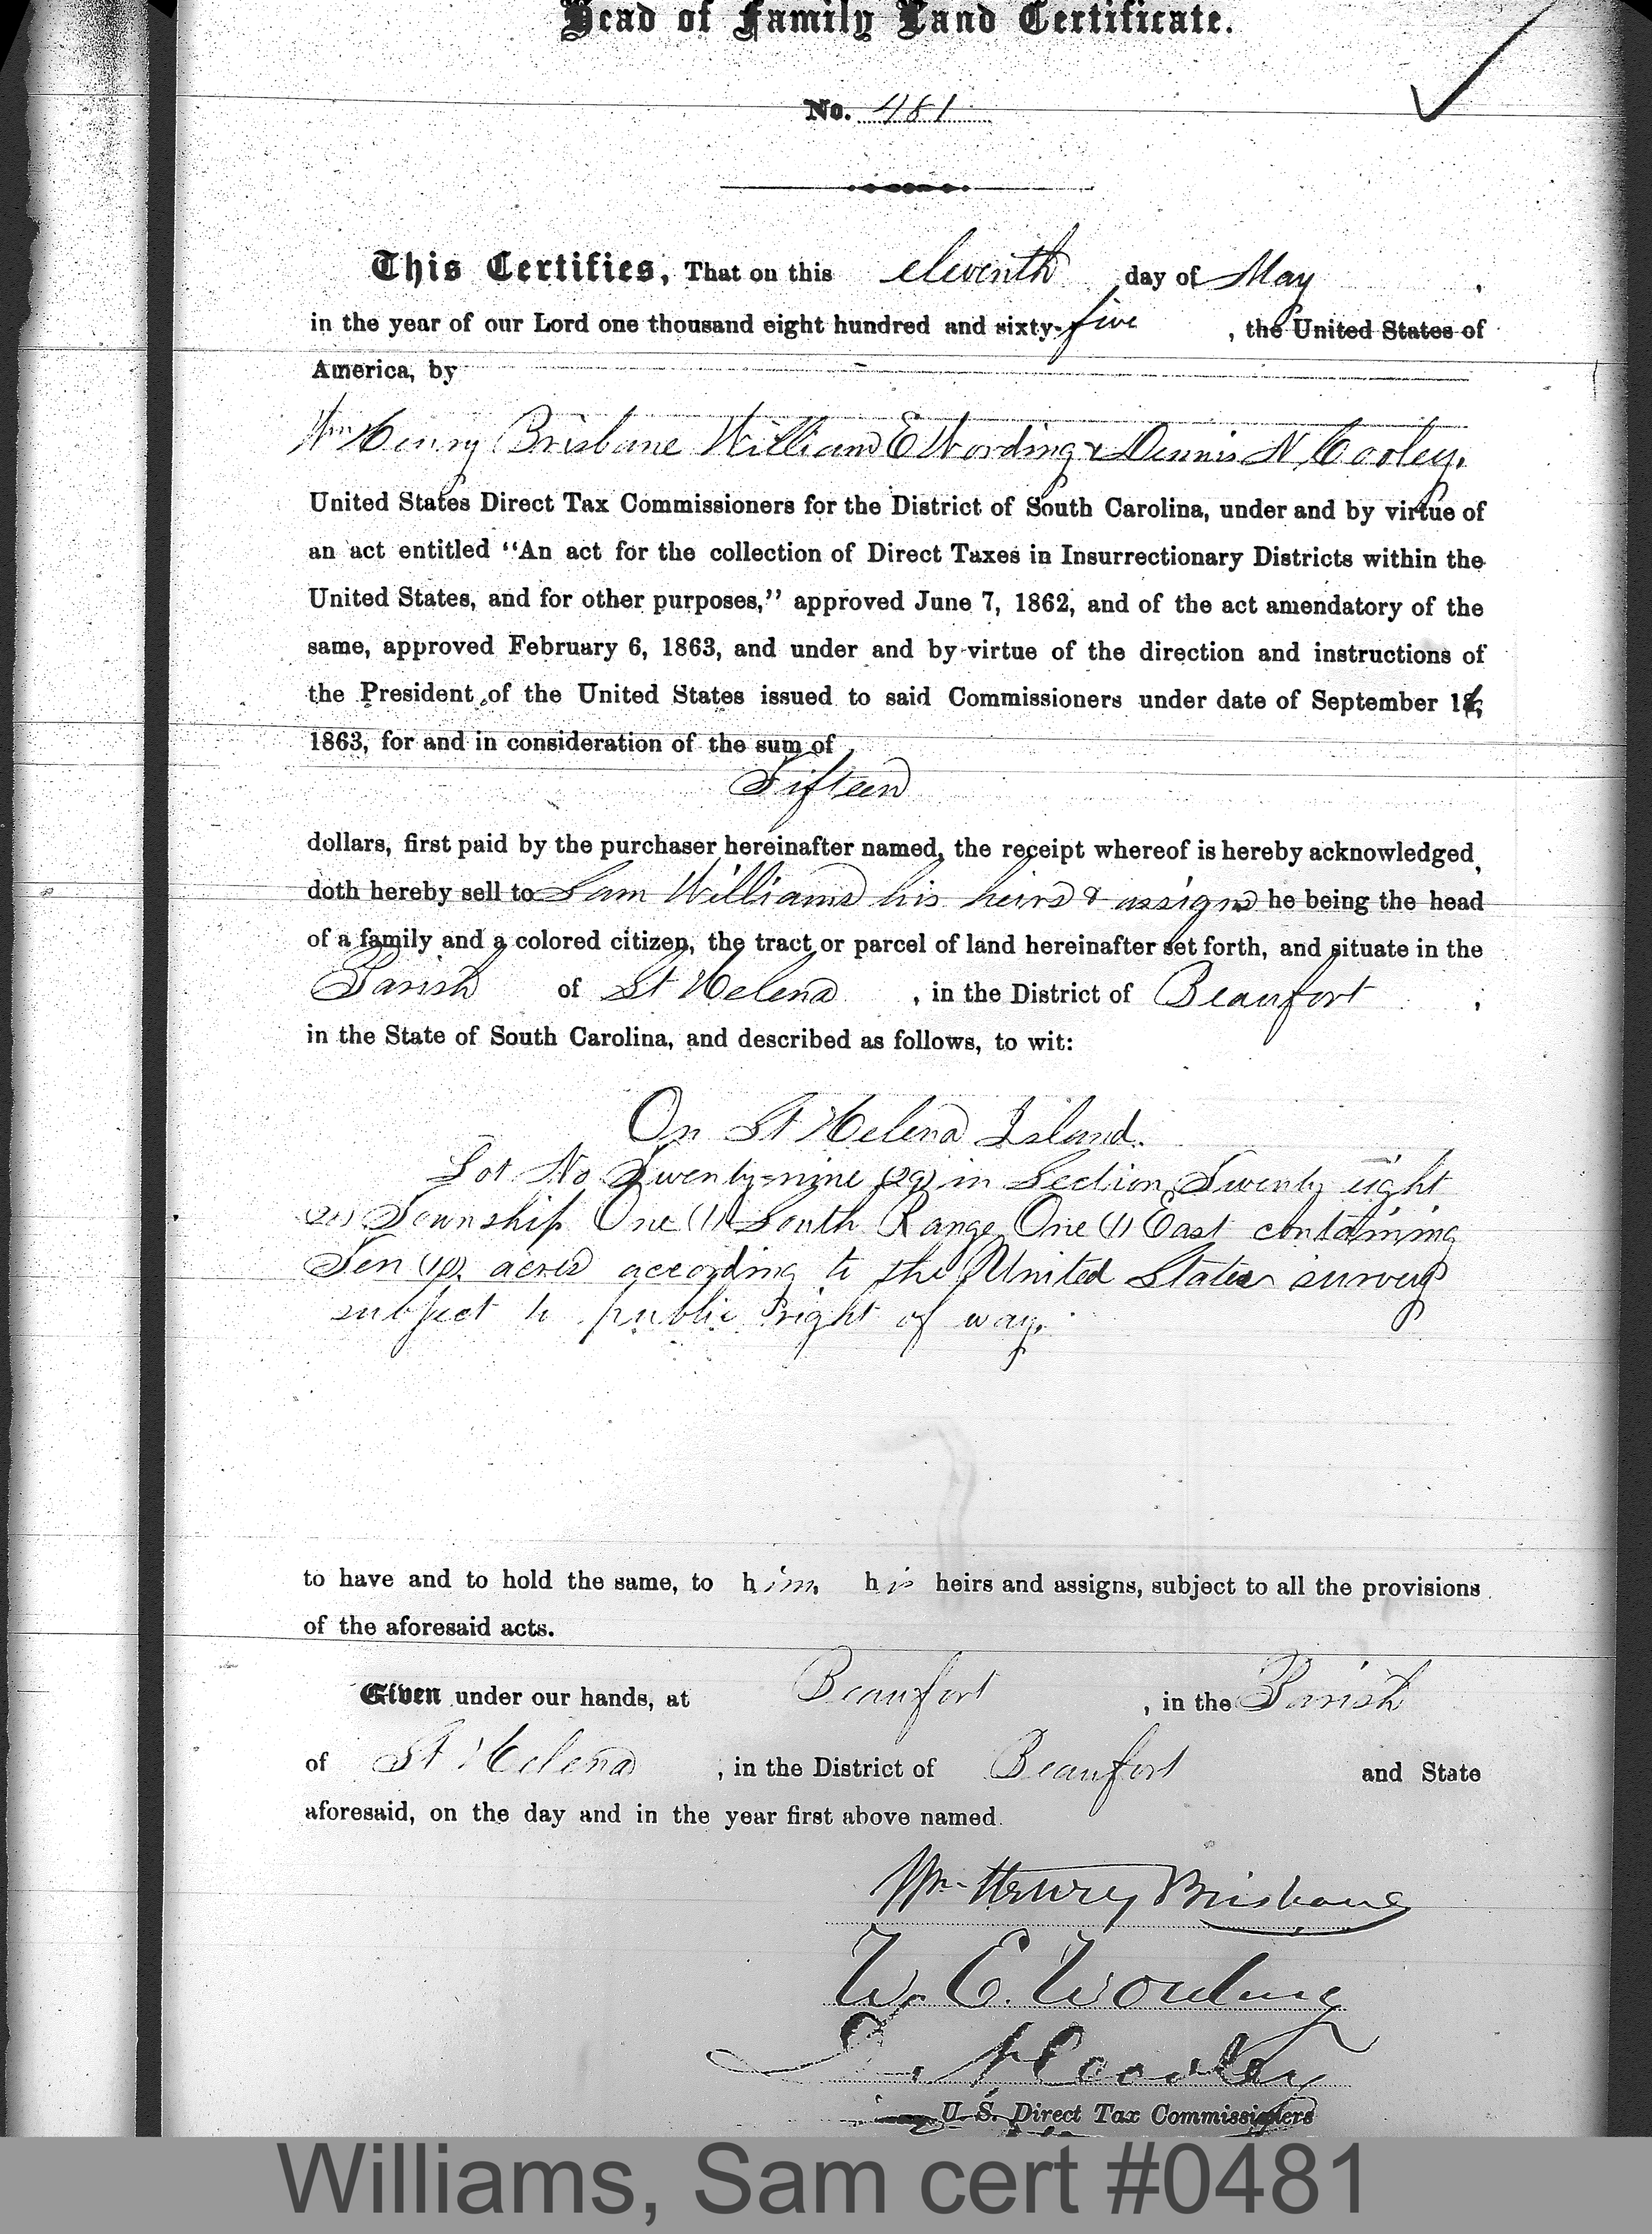 Head of Family Land Certificate.
No. 481
This Certifies, That on this eleventh day of May ,
in the year of our Lord one thousand eight hundred and sixty-five , the United States of
America, by
Wm Henry Brisbane William E Wording & Dennis N Cooley.
United States Direct Tax Commissioners for the District of South Carolina, under and by virtue of
an act entitled "An act for the collection of Direct Taxes in Insurrectionary Districts within the
United States, and for other purposes," approved June 7, 1862, and of the act amendatory of the
same, approved February 6, 1863, and under and by virtue of the direction and instructions of
the President of the United States issued to said Commissioners under date of September
1863, for and in consideration of the sum of
Fifteen
dollars, first paid by the purchaser hereinafter named, the receipt whereof is hereby acknowledged,
doth hereby sell to Sam Williams his heirs & assigns he being the head
of a family and a colored citizen, the tract or parcel of land hereinafter set forth, and situate in the
Parish of St Helena , in the District of Beaufort ,
in the State of South Carolina, and described as follows, to wit:
On St Helena Island.
Lot No Twenty-nine (29) in Section Twenty eight
(28) Township One (1) South Range One (1) East containing
Ten (10) acres according to the United States survey
subject to public right of way.
to have and to hold the same, to him, his heirs and assigns, subject to all the provisions
of the aforesaid acts.
Given under our hands, at Beaufort , in the Parish
of St Helena , in the District of Beaufort and State
aforesaid, on the day and in the year first above named.
Wm Henry Brisbane
W. E. Wording
D. N. Cooley
U. S. Direct Tax Commissioners
Williams, Sam cert #0481